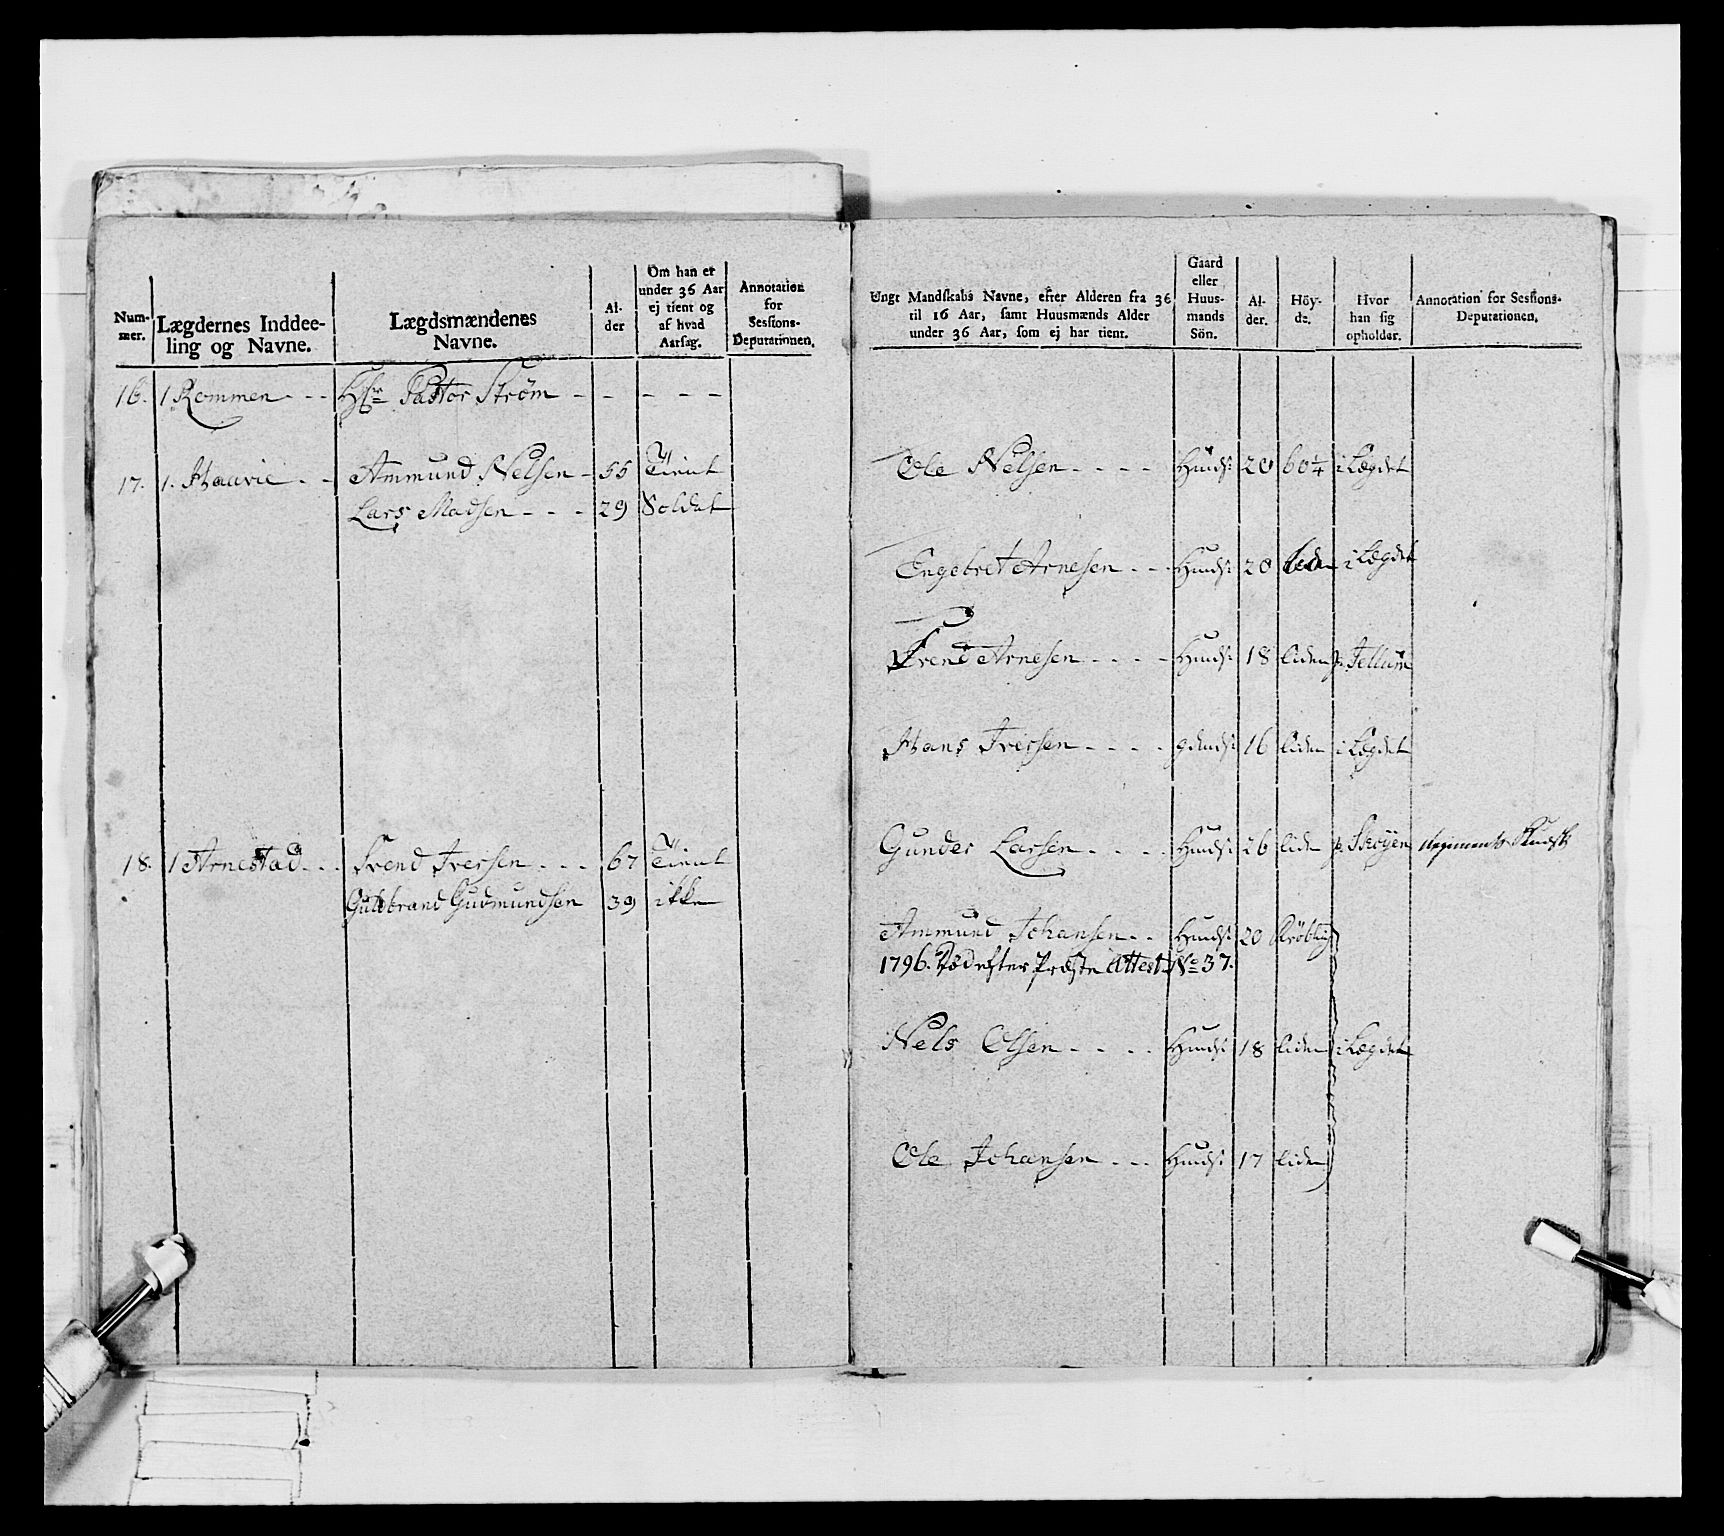 Num-
mer.
Lægdernes Inddee-
ling og Navne.
Lægdsmændenes
Navne.
Al-
der
Om han er
under 36 Aar
ej tient og
af hvad
Aarsag.
Annotation
for
Sessions-
Deputationen.
16. 1 Rommen - - Hr Pastor Strøm - - - - -
17. 1. Haavie - - Ammund Nelsen - 55 Tient
Lars Madsen - - - 29 Soldat
18. 1 Arnestad - - Svend Iversen - - - 67 Tient
Guldbrand Gudmundsen 39 ikke
Ungt Mandskabs Navne, efter Alderen fra 36
til 16 Aar, samt Huusmænds Alder
under 36 Aar, som ej har tient.
Gaard
eller
Huus-
mands
Sön.
Al-
der.
Höy-
de.
Hvor
han sig
opholder.
Annotation for Sessions-
Deputationen.
Ole Nelsen - - - - Huuds: 20 60¼ i Lægdet
Engebret Arnesen - - Huuds: 20 i Lægdet
Svend Arnesen - - - - Huuds: 18 liden p. Jellum
Hans Iversen - - - - 16 liden i Lægdet
Gunder Larsen - - - - Huuds: 26 liden p.
Ammund Johansen - - Huuds: 20 Brøblig
1796. Død efter Præste Attest No 37.
Nels Olsen - - - - Huuds: 18 liden i Lægdet
Ole Johansen - - - Huuds: 17 liden